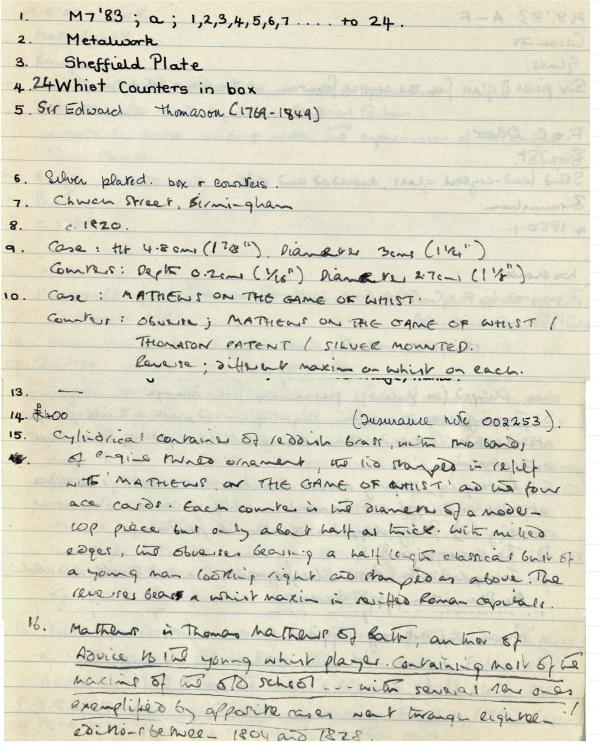 1. M7'83 ; a ; 1,2,3,4,5,6,7 .... to 24.
2. Metalwork
3. Sheffield Plate
4. 24 Whist Counters in box
5. Sir Edward Thomason (1769-1849)
6. Silver plated. box + counters.
7. Church Street, Birmingham
8. c. 1820.
9. Case : Ht 4.8 cms (1 7/8"). Diameter 3cms (1 1/4")
Counters : Depth 0.2cms (1/16") Diameter 2.7cms (1 1/8")
10. Case : MATHEWS ON THE GAME OF WHIST.
Counters : OBVERSE ; MATHEWS ON THE GAME OF WHIST /
THOMASON PATENT / SILVER MOUNTED.
Reverse ; different maxim on whist on each.
13. —
14. £400 (Insurance Note 002253).
15. Cylindrical container of reddish brass, with two bands
of engine turned ornament, the lid stamped in relief
with 'MATHEWS ON THE GAME OF WHIST' and the four
ace cards. Each counter is the diameter of a modern
10p piece but only about half as thick. With milled
edges, the obverses bearing a half length classical bust of
a young man looking right and stamped as above. The
reverses bear a whist maxim in seriffed Roman capitals.
16. Mathews is Thomas Mathews of Bath, author of
Advice to the young whist player. Containing most of the
maxims of the old school ... with several new ones
exemplified by apposite cases went through eighteen
editions between 1804 and 1828.